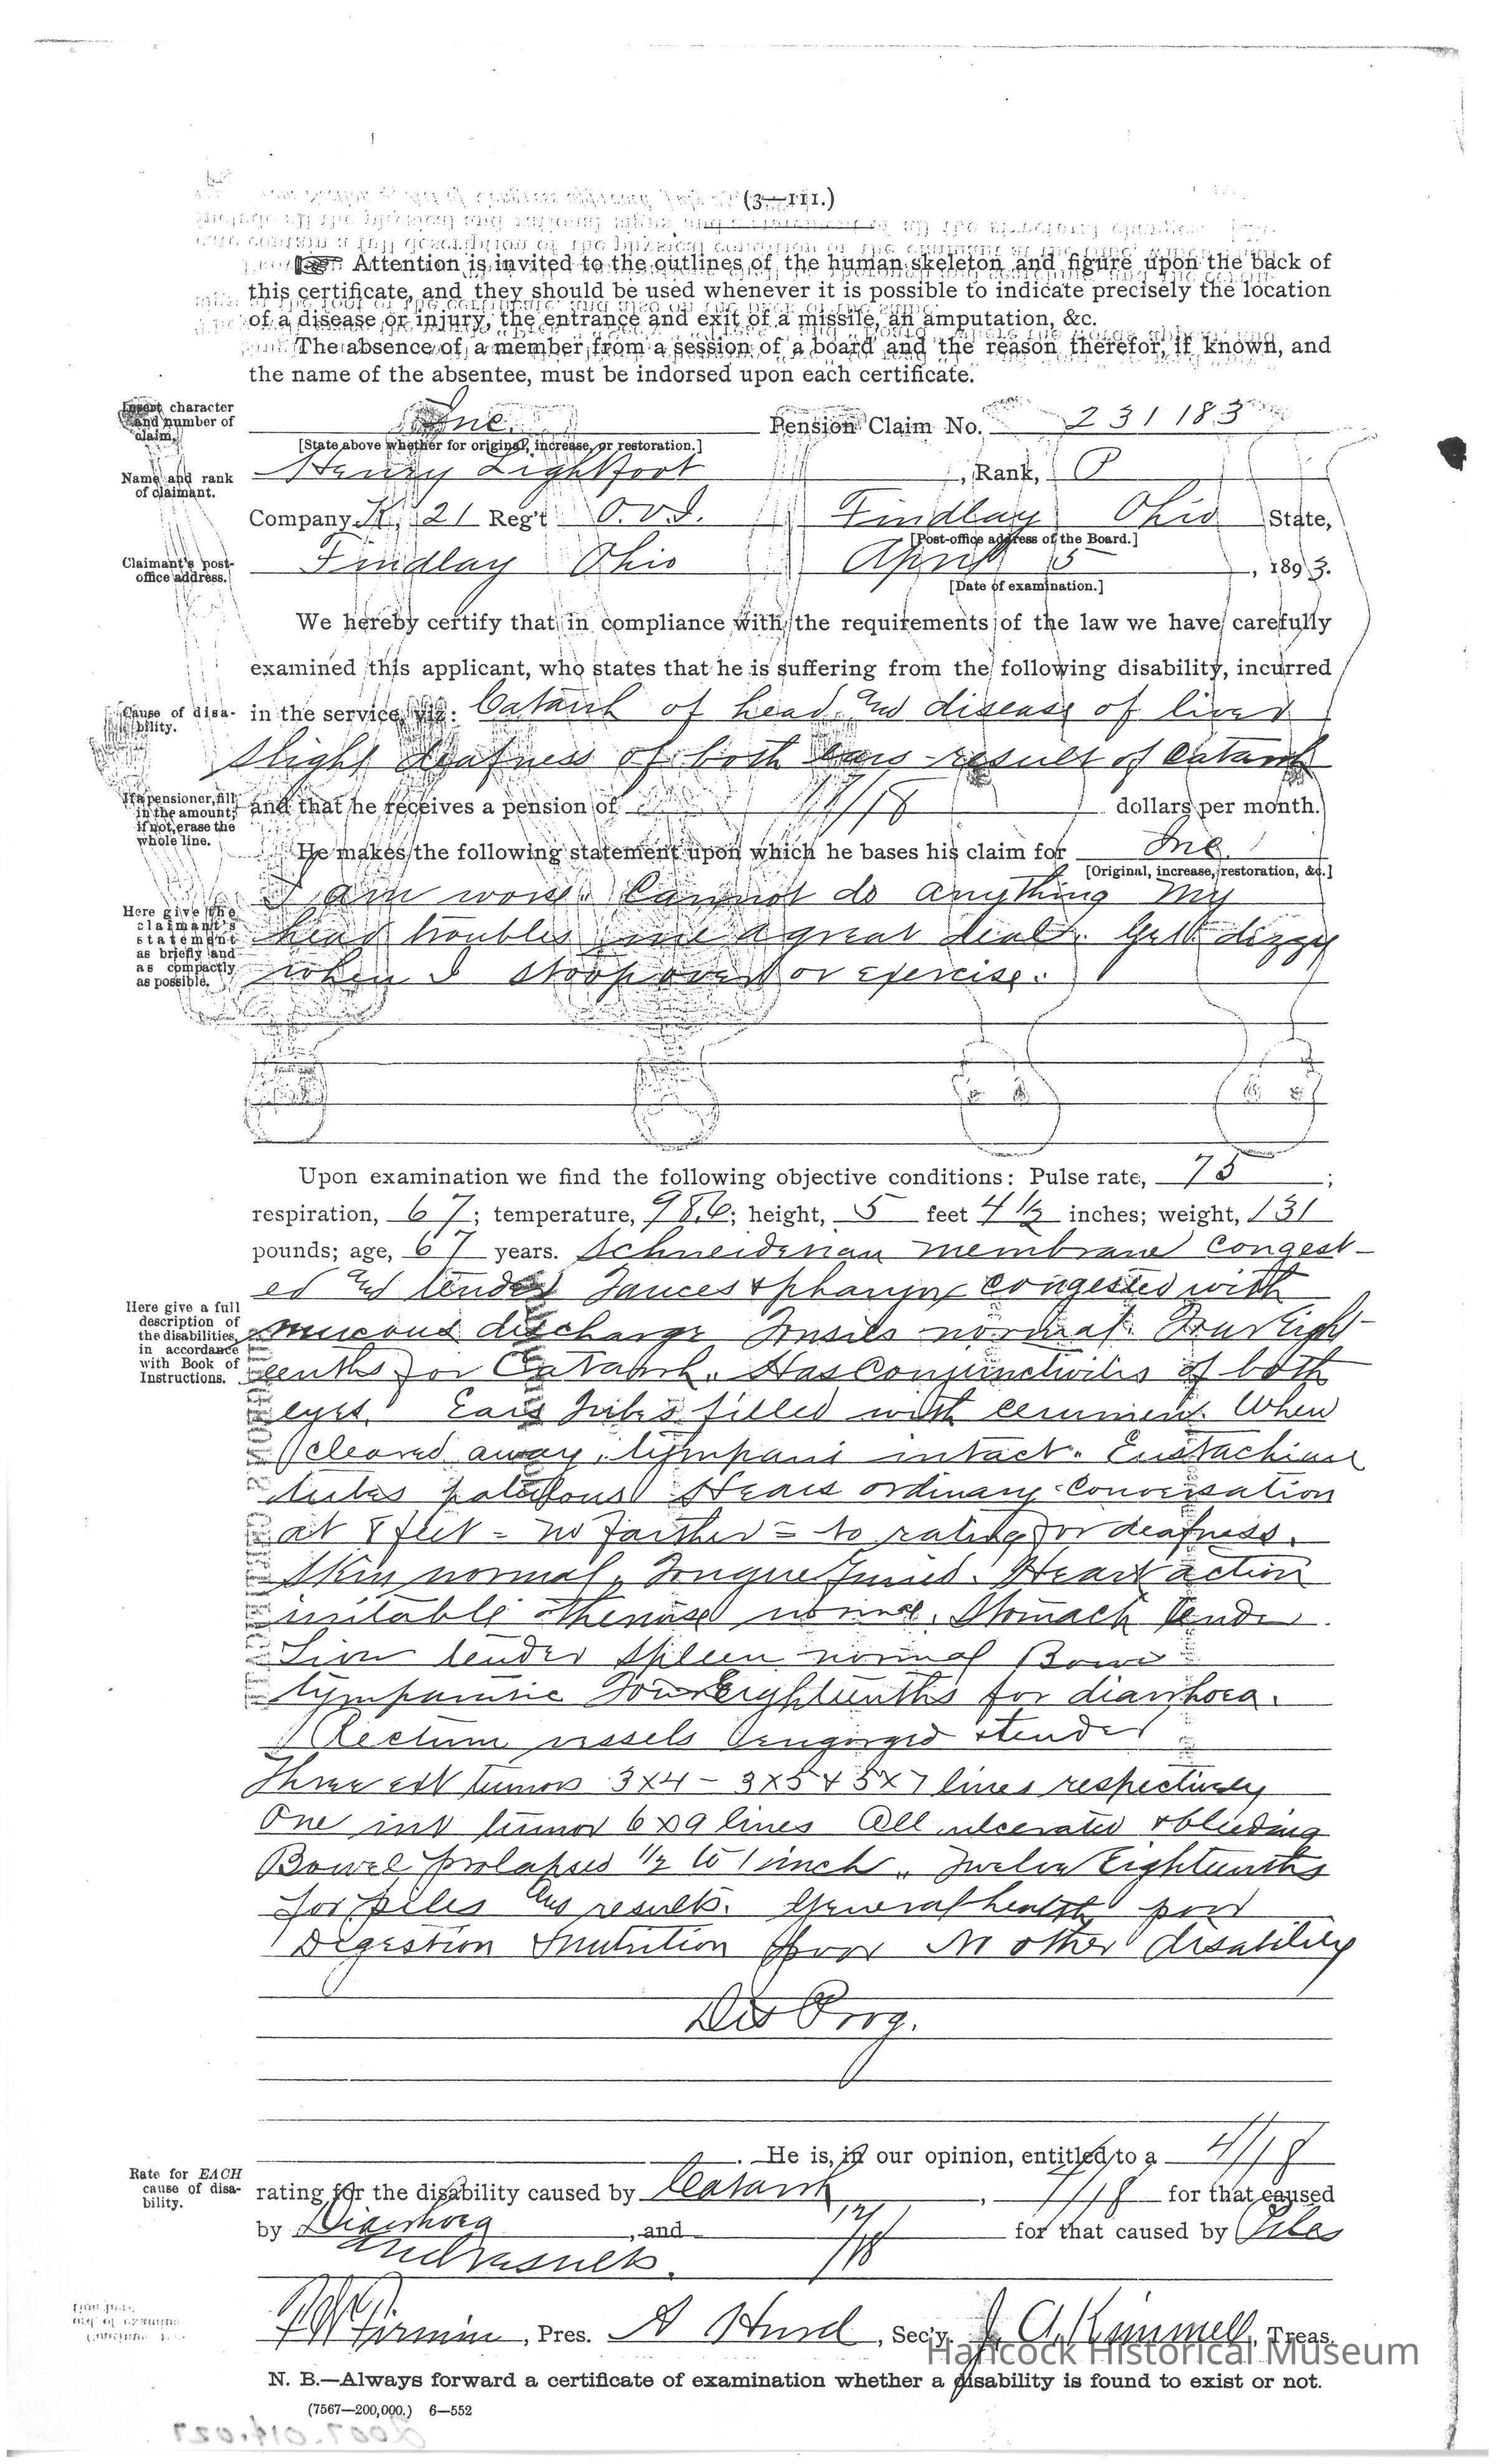 (3—111.)
Attention is invited to the outlines of the human skeleton and figure upon the back of
this certificate, and they should be used whenever it is possible to indicate precisely the location
of a disease or injury, the entrance and exit of a missile, an amputation, &c.
The absence of a member from a session of a board and the reason therefor, if known, and
the name of the absentee, must be indorsed upon each certificate.
Insert character and number of claim.
Inc. Pension Claim No. 231183
[State above whether for original, increase, or restoration.]
Name and rank of claimant.
Henry Lightfoot, Rank, P
Company K, 21 Reg't O.V.I. Findlay Ohio State,
[Post-office address of the Board.]
Claimant's post-office address.
Findlay Ohio April 5, 1893.
[Date of examination.]
We hereby certify that in compliance with the requirements of the law we have carefully
examined this applicant, who states that he is suffering from the following disability, incurred
Cause of disability.
in the service, viz: Catarrh of head and disease of liver
slight deafness of both ears - result of Catarrh
If a pensioner, fill in the amount; if not, erase the whole line.
and that he receives a pension of /18 dollars per month.
He makes the following statement upon which he bases his claim for Inc.
[Original, increase, restoration, &c.]
Here give the claimant's statement as briefly and as compactly as possible.
I am worse. Cannot do anything My
head troubles me a great deal. Get dizzy
when I stoop over or exercise.
Upon examination we find the following objective conditions: Pulse rate, 75;
respiration, 67; temperature, 98.6; height, 5 feet 4 1/2 inches; weight, 131
pounds; age, 67 years. Schneiderian membrane congest-
ed and tender Fauces & pharynx congested with
Here give a full description of the disabilities, in accordance with Book of Instructions.
mucous discharge Tonsils normal. Four Eight-
eenths for Catarrh. Has Conjunctivitis of both
eyes. Ears filled with cerumen. When
cleared away, tympani intact. Eustachian
tubes patulous Hears ordinary conversation
at 8 feet = no farther = no rating for deafness.
Skin normal, Tongue furred. Heart action
irritable otherwise normal. Stomach tender.
Liver tender Spleen normal Bowel
tympanitic Four Eighteenths for diarrhoea.
Rectum vessels engorged & tender
Three ext tumors 3x4 - 3x5 & 5x7 lines respectively
One int tumor 6x9 lines All ulcerated & bleeding
Bowel prolapses 1/2 to 1 inch. Twelve Eighteenths
for piles and results. General health poor
Digestion & nutrition poor No other disability
Dis Prog.
He is, in our opinion, entitled to a 4/18
Rate for EACH cause of disability.
rating for the disability caused by Catarrh, 4/18 for that caused
by Diarrhoea, and 12/18 for that caused by Piles
and results.
Firmin, Pres. A Hurd, Sec'y. J. A. Kimmell, Treas.
Hancock Historical Museum
N. B.—Always forward a certificate of examination whether a disability is found to exist or not.
(7567—200,000.) 6—552
2007.014.027